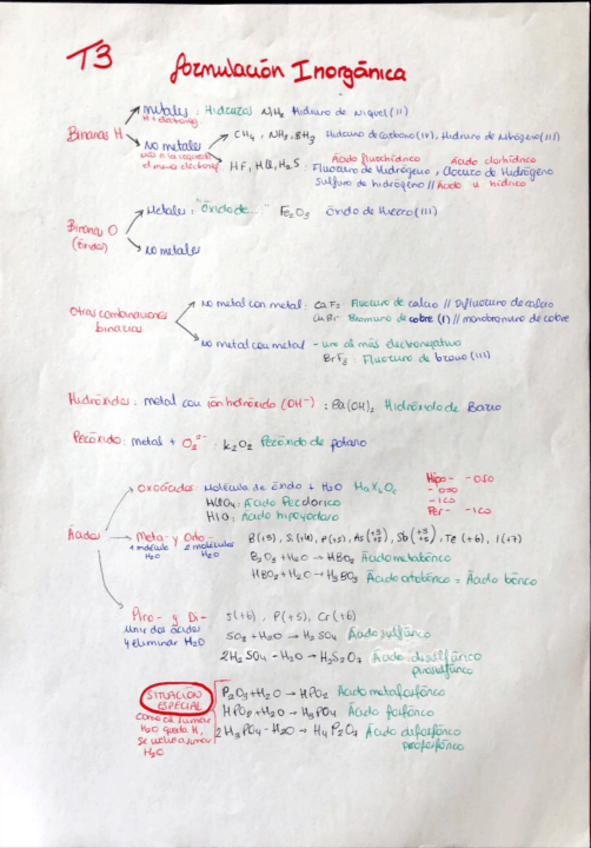 T3
Formulación Inorgánica
Binarias H
metales : Hidruros NiH₂ Hidruro de Níquel (II)
H + electroneg.
No metales
CH₄, NH₃, BH₃ Hidruro de carbono (IV), Hidruro de Nitrógeno (III)
Ácido fluorhídrico Ácido clorhídrico
HF, HCl, H₂S : Fluoruro de Hidrógeno, Cloruro de Hidrógeno
el menos electroneg
Sulfuro de hidrógeno // Ácido hídrico
Binarias O
(Óxidos)
Metales : "óxido de..." Fe₂O₃ óxido de Hierro (III)
No metales
Otras combinaciones
binarias
No metal con metal : CaF₂ Fluoruro de calcio // Difluoruro de calcio
CuBr Bromuro de cobre (I) // monobromuro de cobre
No metal con metal - uro al más electronegativo
BrF₃ : Fluoruro de bromo (III)
Hidróxidos : metal con ión hidróxido (OH⁻) : Ba(OH)₂ Hidróxido de Bario
Peróxido : metal + O₂²⁻ : K₂O₂ Peróxido de potasio
Ácidos
Oxoácidos : Molécula de óxido + H₂O HaXbOc
Hipo- -oso
-oso
-ico
Per- -ico
HClO₄ : Ácido Perclórico
HIO : Ácido hipoyodoso
Meta- y Orto-
1 molécula H₂O
2 moléculas H₂O
B(+3), Si(+4), P(+5), As(+3 +5), Sb(+3 +5), Te(+6), I(+7)
B₂O₃ + H₂O → HBO₂ Ácido metabórico
HBO₂ + H₂O → H₃BO₃ Ácido ortobórico = Ácido bórico
Piro- y Di-
Unir dos ácidos
y eliminar H₂O
S(+6), P(+5), Cr(+6)
SO₃ + H₂O → H₂SO₄ Ácido sulfúrico
2H₂SO₄ - H₂O → H₂S₂O₇ Ácido disulfúrico
pirosulfúrico
SITUACIÓN
ESPECIAL
Como al sumar
H₂O queda H,
se vuelve a sumar
H₂O
P₂O₅ + H₂O → HPO₃ Ácido metafosfórico
HPO₃ + H₂O → H₃PO₄ Ácido fosfórico
2H₃PO₄ - H₂O → H₄P₂O₇ Ácido difosfórico
pirofosfórico